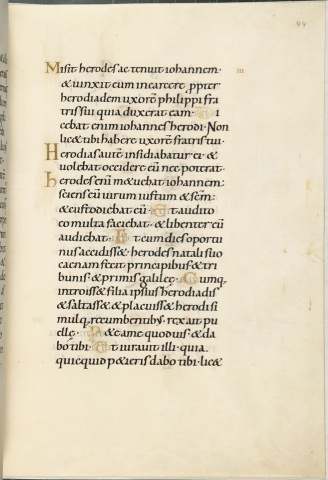 94
Misit herodes ac tenuit iohannem·
& uinxit eum in carcere ꝓpter
herodiadem uxorē philippi fra
tris sui quia duxerat eam· Di
cebat enim iohannes herodi· Non
lic& tibi habere uxorē fratris tui·
Herodias autē insidiabatur ei· &
uolebat occidere eū nec poterat·
herodes enī m&uebat iohannem·
sciens eū uirum iustum & scm̄·
& custodiebat eū· Et audito
eo multa faciebat· & libenter eū
audiebat· Et cum dies oportu
nus accidiss& herodes natalis suo
caenam fecit principibus & tri
bunis & primis galileę· Cumq,
introiss& filia ipsius herodiadis
& saltass& & placuiss& herodi si
mulq, recumbentibꝰ· rex ait pu
ellę· P&e a me quod uis & da
bo tibi· Et iurauit illi· quia
quicquid p&ieris dabo tibi· lic&